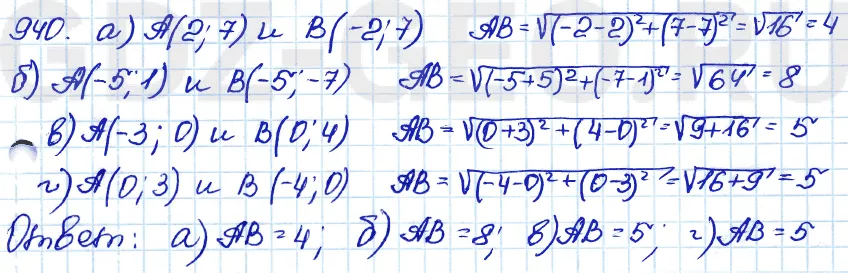 940. а) A(2; 7) и B(-2; 7) AB = √(-2-2)²+(7-7)² = √16 = 4
б) A(-5; 1) и B(-5; -7) AB = √(-5+5)²+(-7-1)² = √64 = 8
в) A(-3; 0) и B(0; 4) AB = √(0+3)²+(4-0)² = √9+16 = 5
г) A(0; 3) и B(-4; 0) AB = √(-4-0)²+(0-3)² = √16+9 = 5
Ответ: а) AB = 4; б) AB = 8; в) AB = 5; г) AB = 5